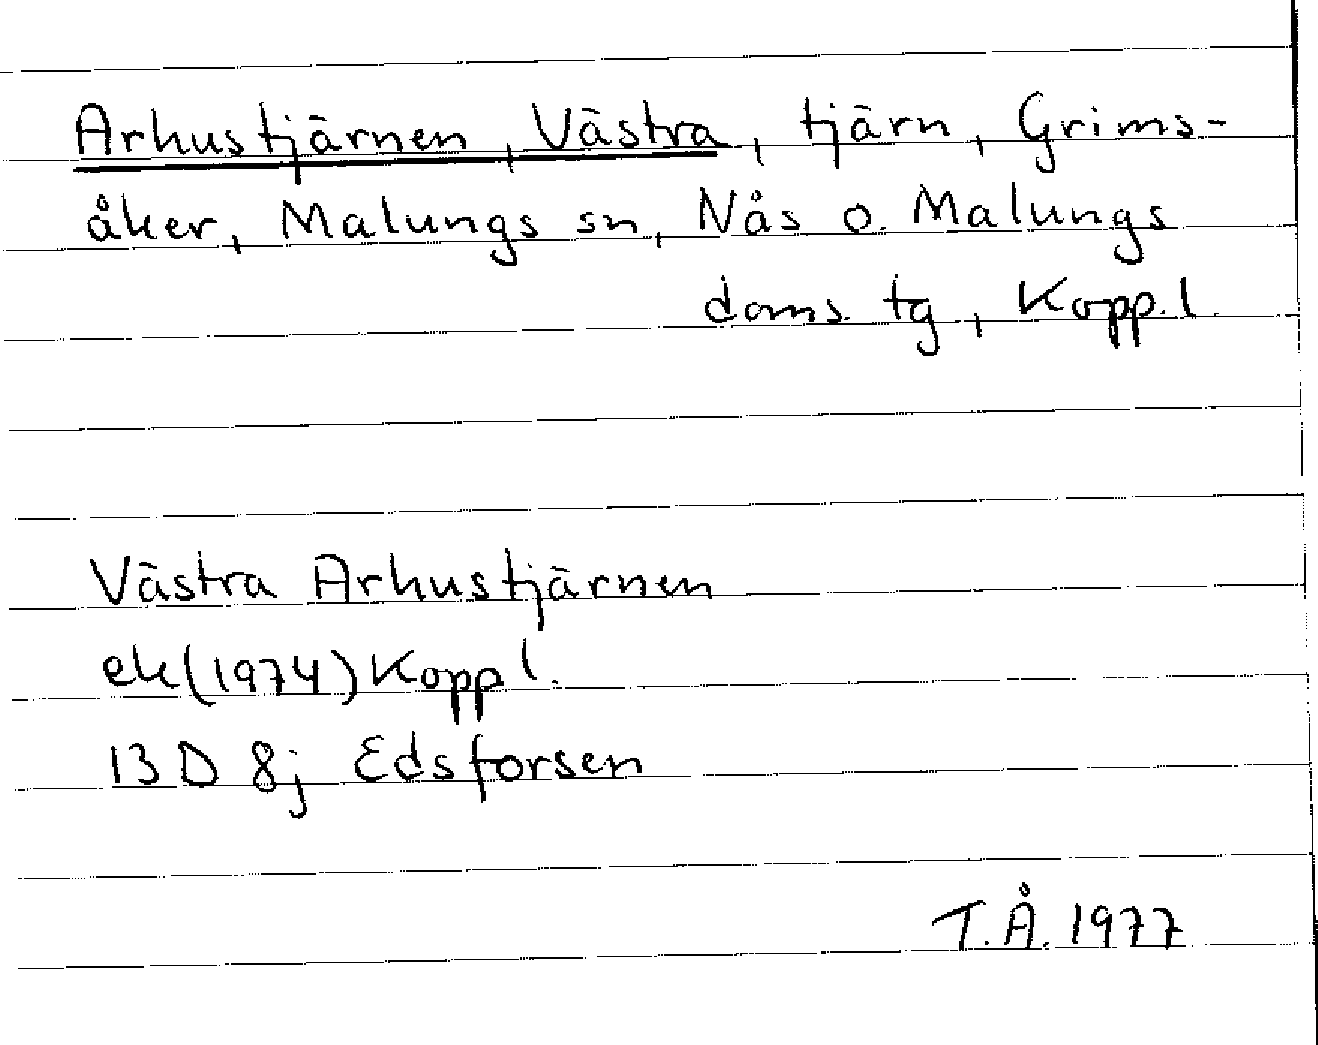 Arhustjärnen, Västra, tjärn, Grims-
åker, Malungs sn, Nås o. Malungs
doms. tg, Kopp. l.
Västra Arhustjärnen
ek (1974) Kopp l.
13 D 8j Edsforsen
T.Å. 1977